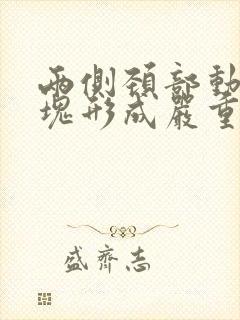 兩側頸部動
塊形成嚴重
盛齊志